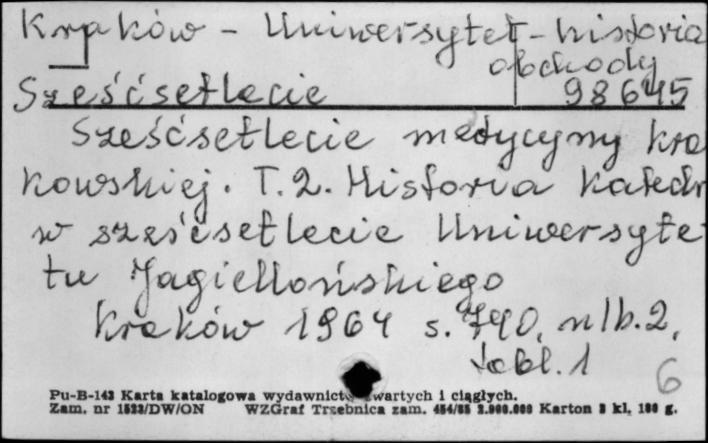 Kraków - Uniwersytet - historia
obchody
Sześćsetlecie 98645
Sześćsetlecie medycyny kra
kowskiej. T.2. Historia katedr
w sześćsetlecie Uniwersyte
tu Jagiellońskiego
Kraków 1964 s. 740, nlb. 2,
tabl. 1
6
Pu-B-143 Karta katalogowa wydawnictw zwartych i ciągłych.
Zam. nr 1523/DW/ON WZGraf Trzebnica zam. Karton 3 kl. g.